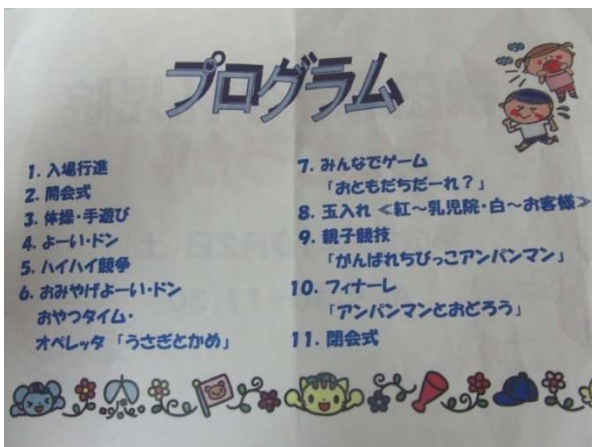 プログラム
1. 入場行進
2. 開会式
3. 体操・手遊び
4. よーい・ドン
5. ハイハイ競争
6. おみやげよーい・ドン
おやつタイム・
オペレッタ「うさぎとかめ」
7. みんなでゲーム
「おともだちだーれ?」
8. 玉入れ≪紅~乳児院・白~お客様≫
9. 親子競技
「がんばれちびっこアンパンマン」
10. フィナーレ
「アンパンマンとおどろう」
11. 閉会式